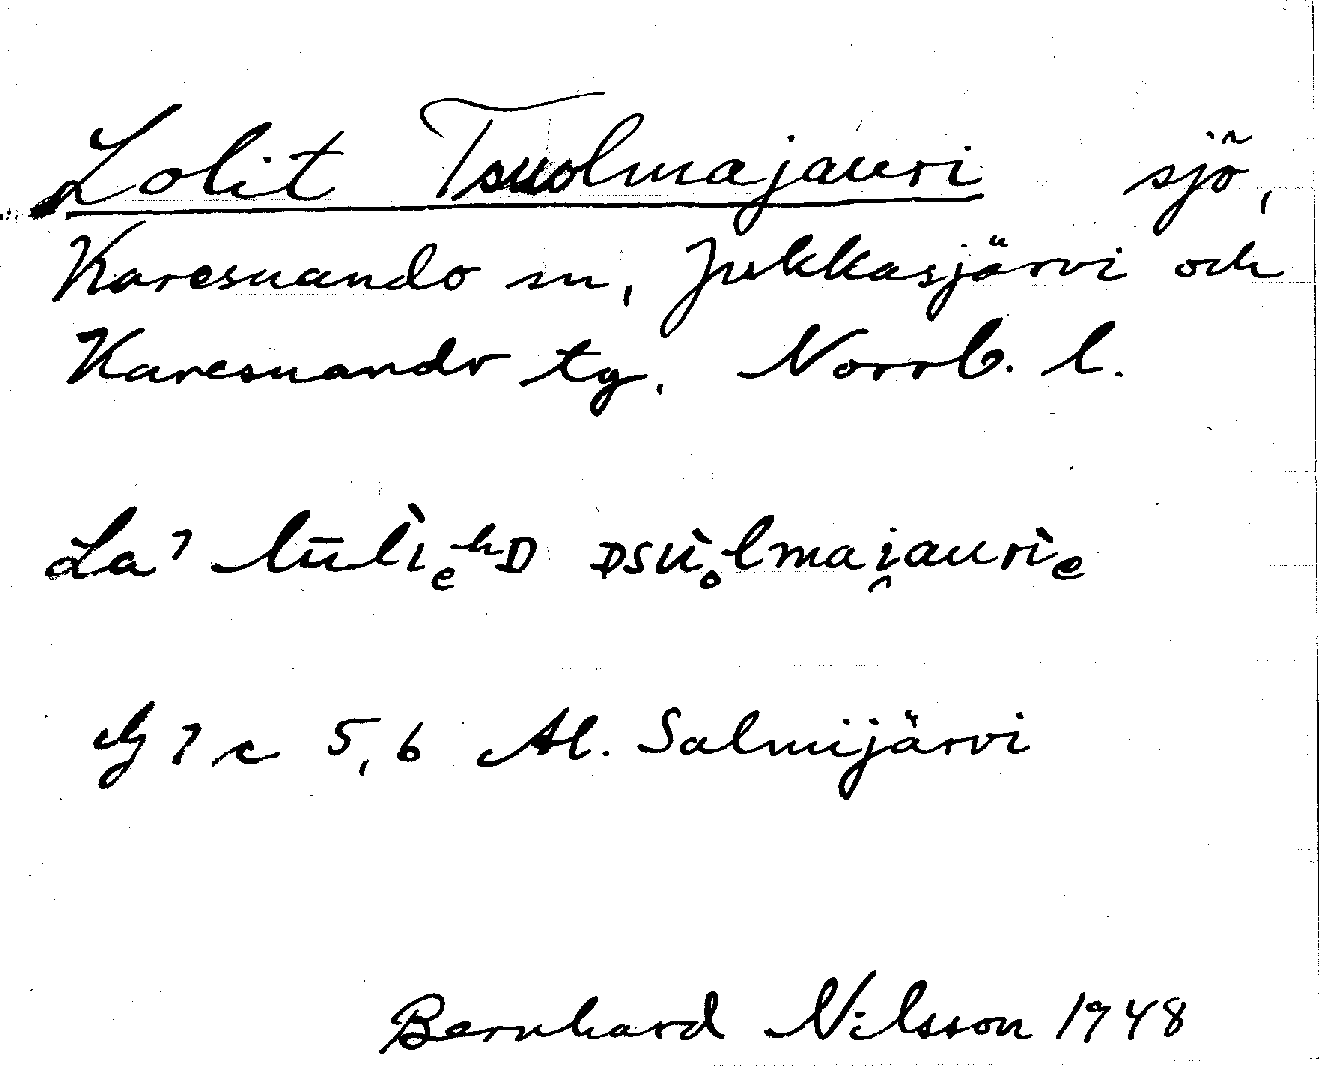 Lolit Tsuolmajauri sjö,
Karesuando sn, Jukkasjärvi och
Karesuando tg. Norrb. l.
La7
G 7 c 5, 6 Al. Salmijärvi
Bernhard Nilsson 1948